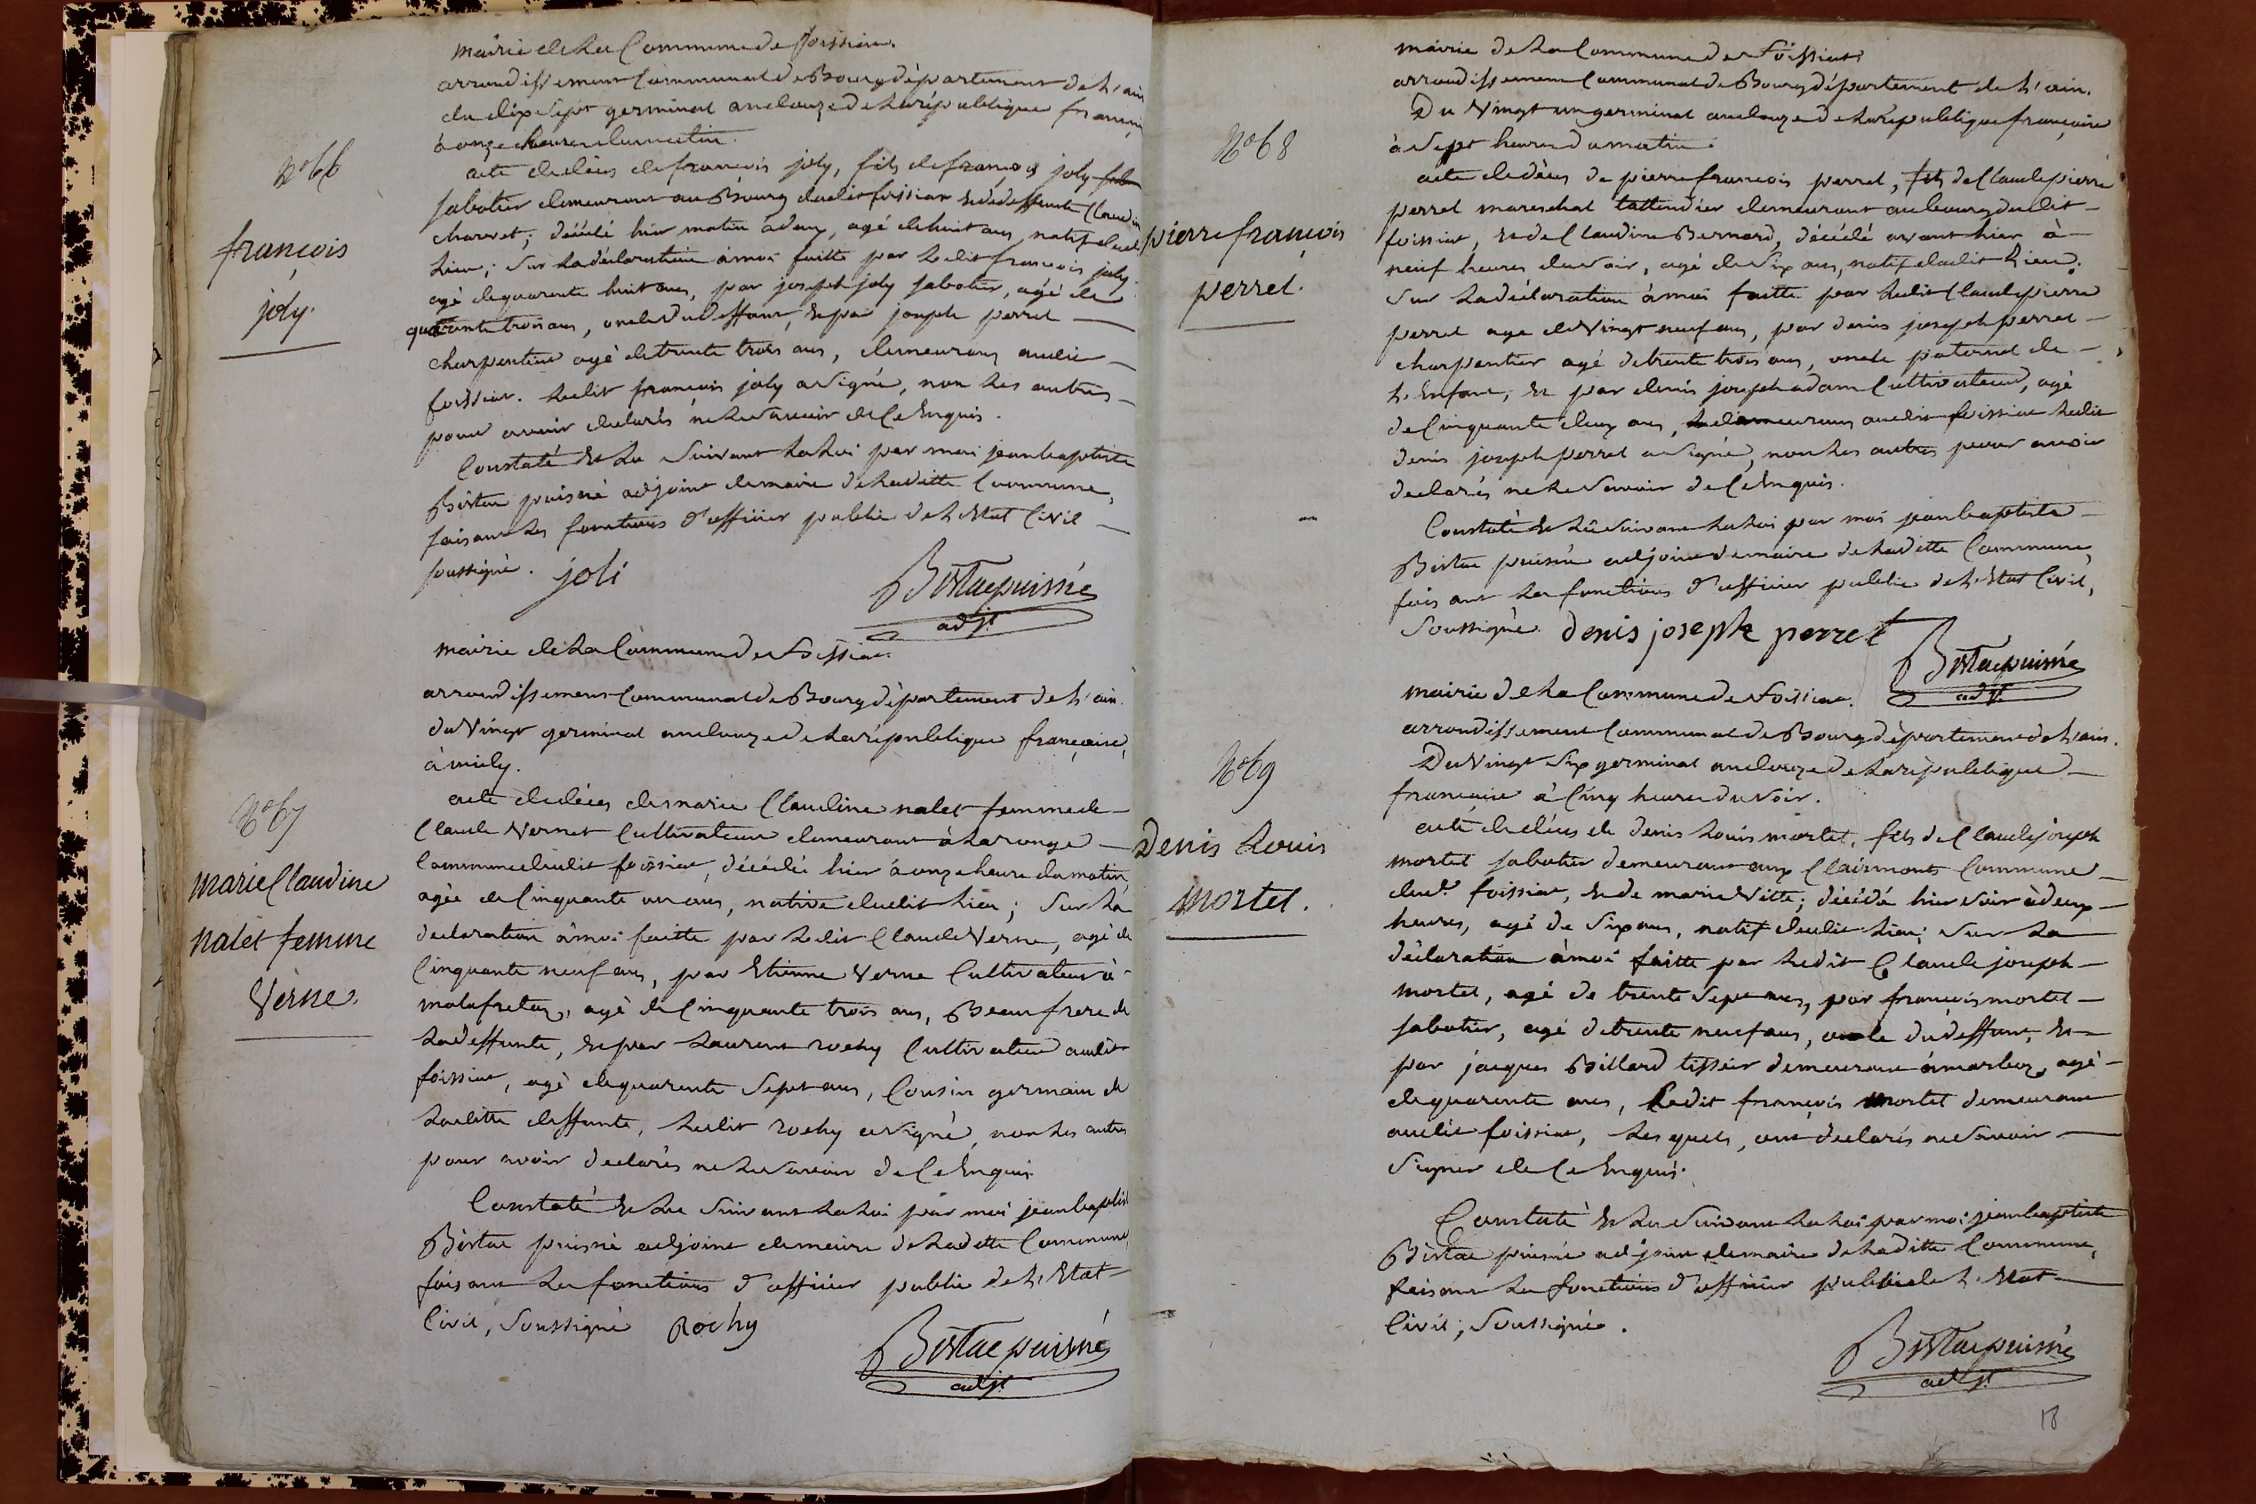 mairie de la Commune de foissiat.
arrondissement Communal de Bourg département de l'ain
du dix sept germinal an douze de la république françai
à onze heures du matin.
N° 66
françois
joly.
acte de décès de francois joly, fils de françois joly
sabotier demeurant au Bourg dudit foissiat et de deffunte Claudine
charvet; décédé hier matin à deux, agé de huit ans, natif dudit
lieu; sur la déclaration à moi faitte par ledit francois joly
agé de quarente huit ans, par joseph joly sabotier, agé de
quarante trois ans, oncle du deffunt, et par joseph perret
charpentier agé de trente trois ans, demeurans audit
foissiat. ledit francois joly a signé, non les autres
pour avoir declarés ne le savoir de ce Enquis.
Constaté et lu suivant la loi par moi jean baptiste
Bistac puisné adjoint demaire de laditte Commune,
faisant les fonctions d'officier public de l'Etat Civil
soussigné. joli
Bistac puisné
adjt
mairie de la Commune de foissiat
arrondissement Communal de Bourg département de l'ain.
du Vingt germinal an douze de la république française,
à midy.
N° 67
marie Claudine
nalet femme
Verne.
acte de décès de marie Claudine nalet femme de
Claude Vernet Cultivateur demeurant à la ronge
Commune dudit foissiat, décédée hier à onze heure du matin,
agée de Cinquante un ans, native dudit lieu; sur la
declaration à moi faitte par ledit Claude Verne, agé de
Cinquante neuf ans, par Etienne Verne Cultivateur à
malafretaz, agé de Cinquante trois ans, Beau frere de
la deffunte, et par Laurent rochy Cultivateur audit
foissiat, agé de quarente sept ans, Cousin germain de
laditte deffunte, ledit rochy a signé, non les autres
pour avoir declarés ne le savoir de Ce Enquis.
Constaté et lu suivant la loi par moi jean baptiste
Bistac puisné adjoint demaire de laditte Commune,
faisant les fonctions d'officier public de l'Etat
Civil, soussigné Rochy
Bistac puisné
adjt
mairie de la Commune de foissiat
arrondissement Communal de Bourg département de l'ain.
Du Vingt un germinal an douze de la république française
à sept heures du matin.
N° 68
pierre françois
perret.
acte de décès de pierre francois perret, fils de Claude pierre
perret mareschal tallendier demeurant au bourg dudit
foissiat, et de Claudine Bernard, décédé avant hier à
neuf heures du soir, agé de six ans, natif dudit lieu.
sur la déclaration à moi faitte par ledit Claude pierre
perret agé de Vingt neuf ans, par denis joseph perret
charpentier agé de trente trois ans, oncle paternel de
l'Enfant, et par denis joseph adam Cultivateur, agé
de Cinquante deux ans, demeurans audit foissiat ledit
denis joseph perret a signé, non les autres pour avoir
declarés ne le savoir de Ce Enquis.
Constaté et lû suivant la loi par moi jean baptiste
Bistac puisné adjoint demaire de laditte Commune,
faisant les fonctions d'officier public de l'Etat Civil,
soussigné. denis joseph perret
Bistac puisné
adjt
mairie de la Commune de foissiat.
arrondissement Communal de Bourg département de l'ain.
Du Vingt six germinal an douze de la république
francaise à Cinq heures du soir.
N° 69
Denis Louis
mortel.
acte de décès de denis Louis mortel, fils de Claude joseph
mortel sabotier demeurant aux Clairmonts Commune
dudt foissiat, et de marie Vitte; décédé hier soir à deux
heures, agé de six ans, natif dudit lieu; sur la
déclaration à moi faitte par ledit Claude joseph
mortel, agé de trente sept ans, par françois mortel
sabotier, agé de trente neuf ans, oncle du deffunt, et
par jacques Billard tissier demeurant à marboz, agé
de quarente ans, Ledit françois mortel demeurant
audit foissiat, lesquels, ont declarés ne savoir
signer de Ce Enquis.
Constaté et lu suivant la loi par moi jean baptiste
Bistac puisné adjoint demaire de laditte Commune,
faisant les fonctions d'officier public de l'Etat
Civil, soussigné.
Bistac puisné
adjt
18